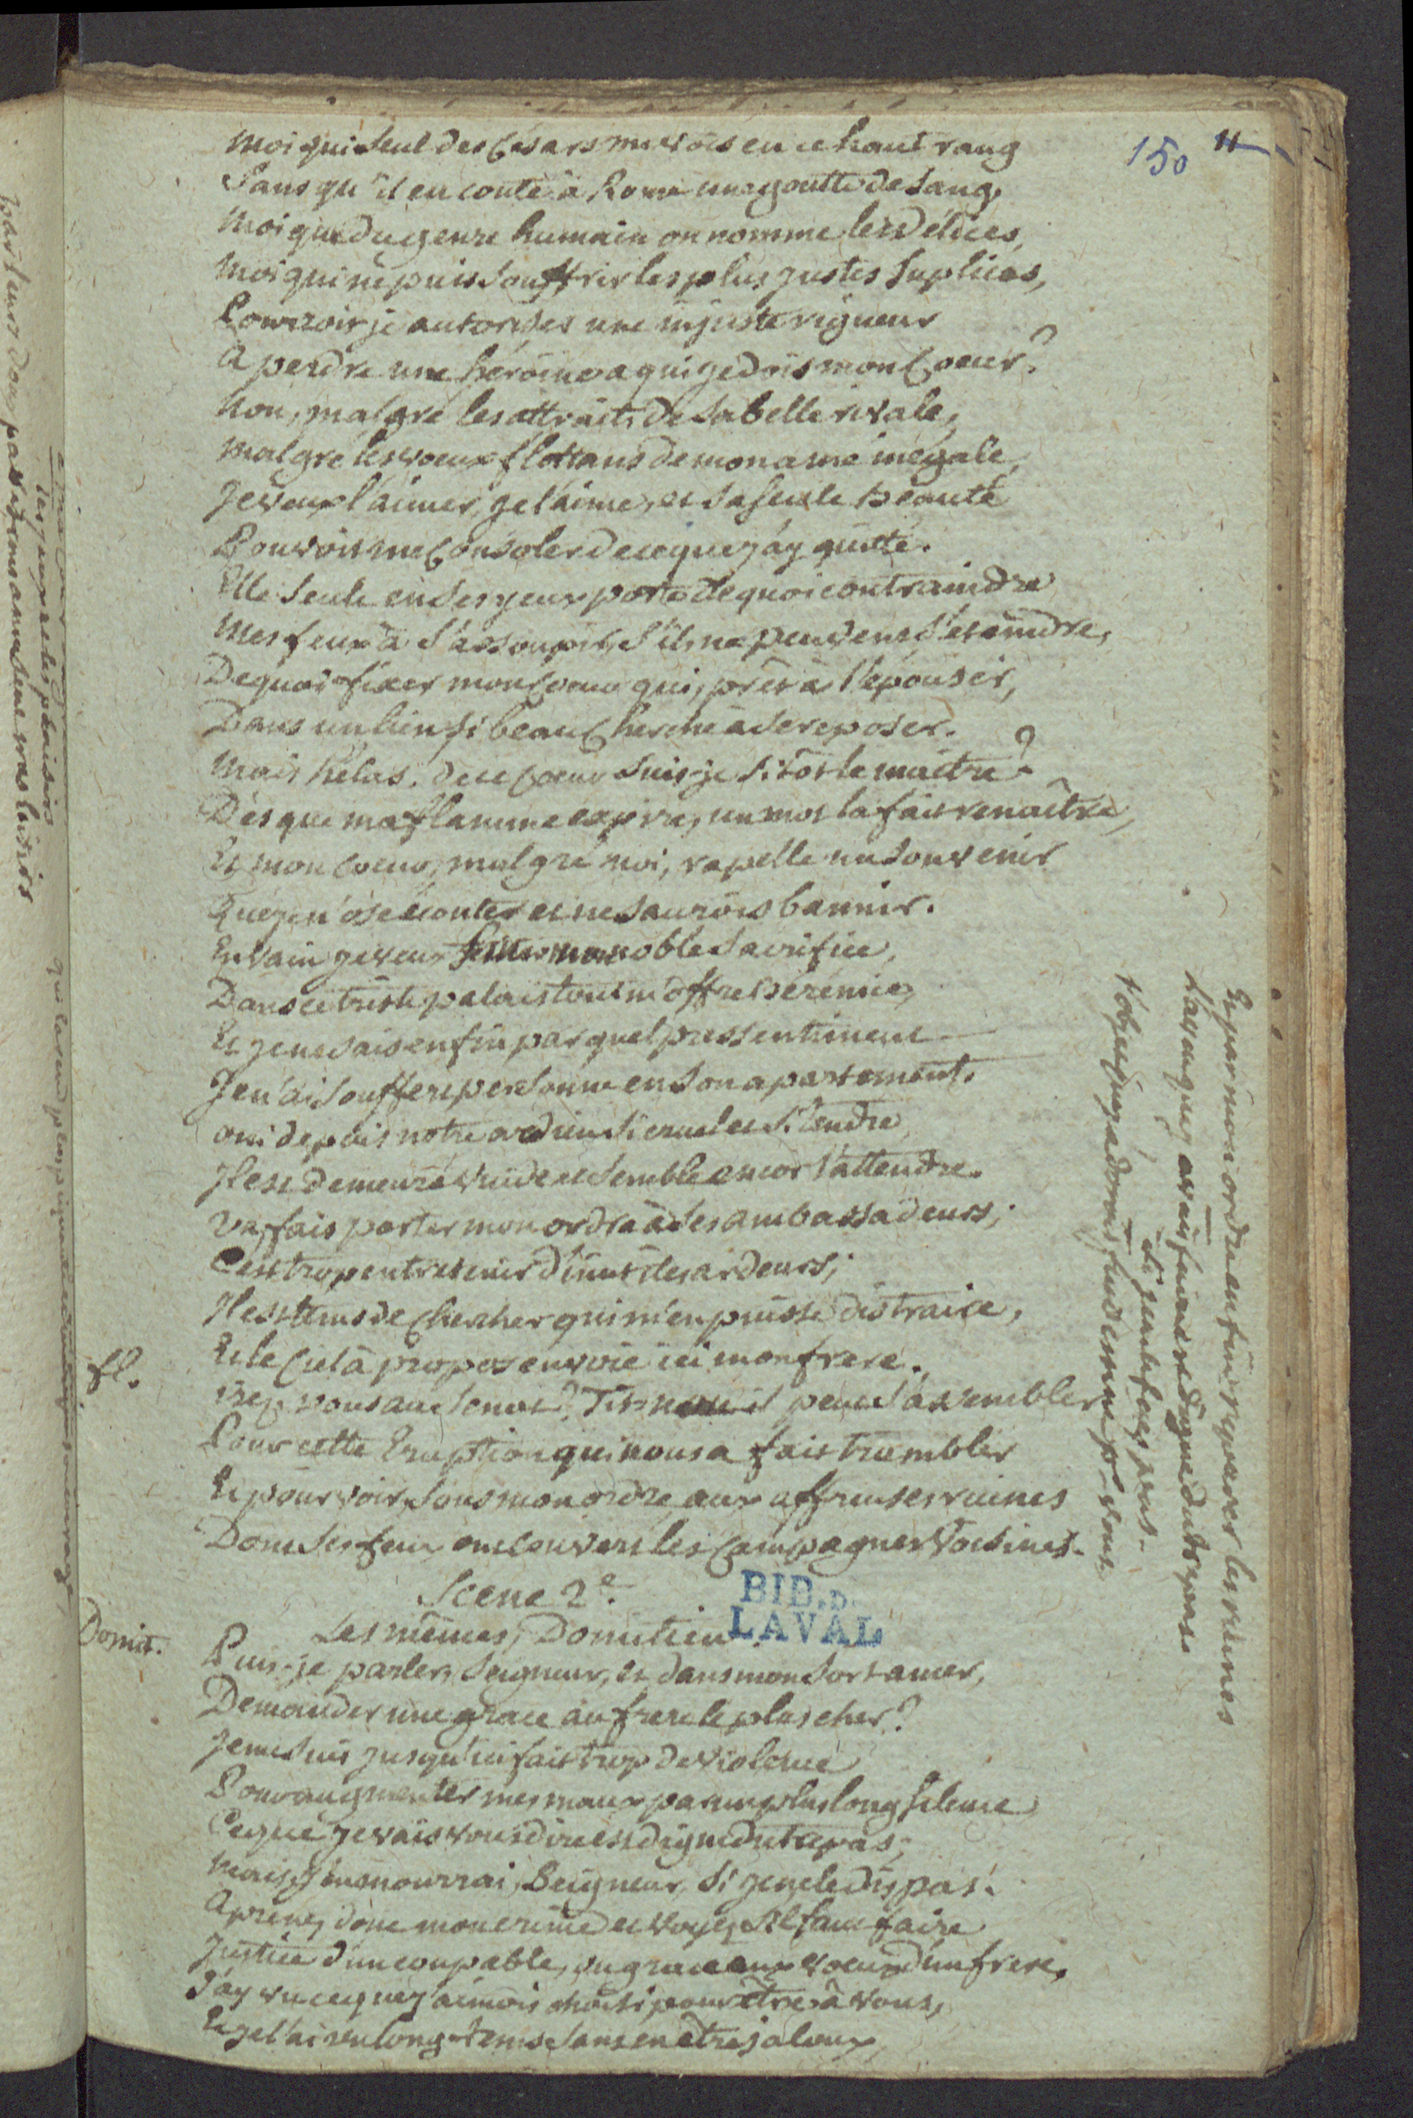 150 11
Moi qui seul des Césars me vois en ce haut rang
Sans qu'il en coute à Rome une goutte de sang,
Moi que du genre humain on nomme les délices,
Moi qui ne puis souffrir les plus justes suplices,
Pourrois je autoriser une injuste rigueur
A perdre une héroïne a qui je dois mon Coeur?
Non, malgré les attraits de sa belle rivale,
Malgré les voeux flottans de mon ame inégale,
Je veux l'aimer, je l'aime, et sa seule beauté
Pouvoit me Consoler de ce que j'ay quitté.
Elle seule en ses yeux porte de quoi contraindre
Mes feux à s'assoupir, s'ils ne peuvent s'éteindre,
De quoi fixer mon Coeur qui, prêt à l'épouser,
Dans un lien si beau Cherche à se reposer.
Mais hélas. de ce Coeur suis-je si tôt le maitre?
Dès que ma flamme expire, un mot la fait renaître,
Et mon Coeur, malgré moi, rapelle un souvenir
Que je n'ose écouter et ne saurois bannir.
En vain je veux mon noble sacrifice,
Dans ce triste palais tout m'offre Bérénice,
Et je ne sais enfin par quel pressentiment
Je n'ai souffert personne en son apartement.
oui depuis notre adieu si cruel et si tendre
Il est demeuré vuide et semble encor l'attendre.
Va, fais porter mon ordre à ses ambassadeurs;
C'est trop entretenir d'inutiles ardeurs;
Il est tems de Chercher qui m'en puisse distraire,
Et le Ciel à propos envoie ici mon frere.
fl. Irez vous au senat? Tit. il peut s'assembler
Pour cette Eruption qui nous a fait trembler
Et pourvoir sous mon ordre aux affreuses ruines
Dont ses feux ont couvert les Campagnes Voisines.
Scene 2e.
Les mêmes, Domitien
BIB. D. LAVAL
Domit. Puis-je parler, Seigneur, et dans mon sort amer,
Demander une grace au frere le plus cher?
Je me suis jusqu'ici fait trop de violence
Pour augmenter mes maux par un plus long silence
Ce que je vais vous dire est digne du trepas;
Mais j'en mourrai, Seigneur, si je ne le dis pas.
Aprenez donc mon crime et voyez s'il faut faire
Justice d'un coupable, ou grace aux voeux d'un frere.
J'ay vu ce que j'aimois choisi pour être à vous,
Et je l'ai vu long-tems sans en être jaloux
Et par mon ordre enfin reparer les ruines
L'aveu que j' vais faire est digne du trepas
si je ne le fais pas.
l'objet que j'adorois fut destiné p. vous